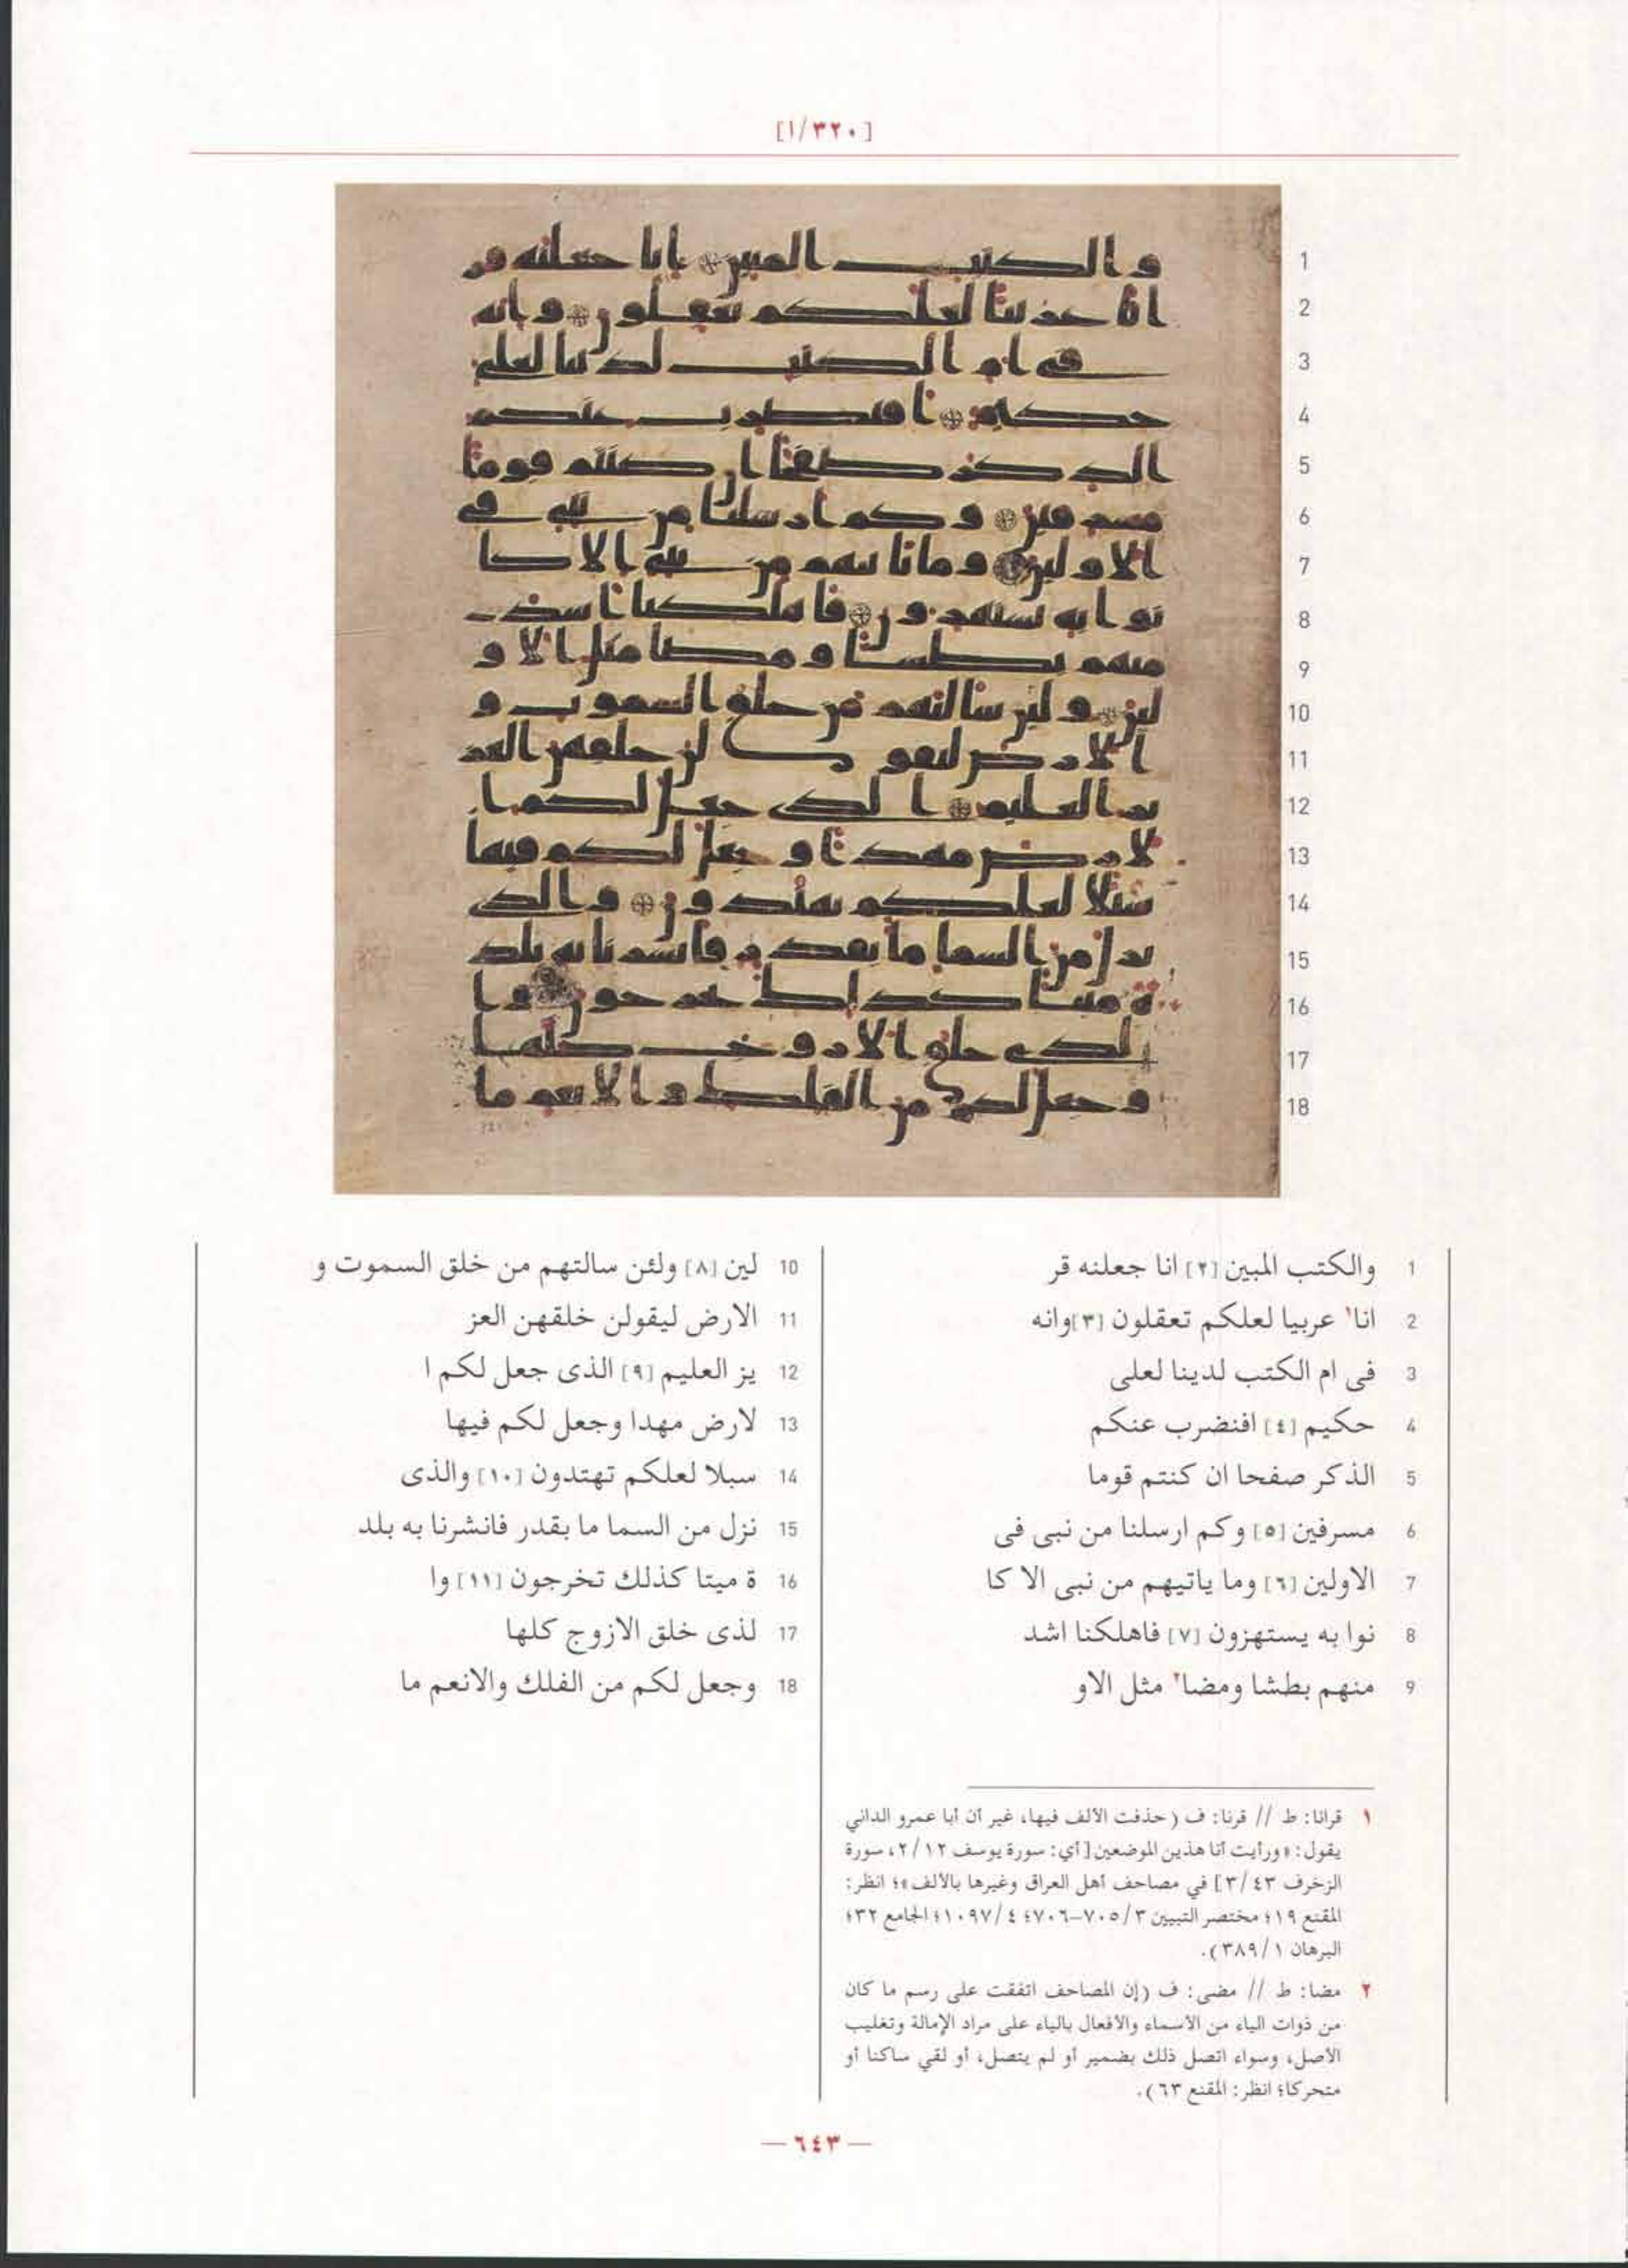 [١/٣٢٠]
1 والكتب المبين [٢] انا جعلنه قر
2 انا١ عربيا لعلكم تعقلون [٣] وانه
3 فى ام الكتب لدينا لعلى
4 حكيم [٤] افنضرب عنكم
5 الذكر صفحا ان كنتم قوما
6 مسرفين [٥] وكم ارسلنا من نبى فى
7 الاولين [٦] وما ياتيهم من نبى الا كا
8 نوا به يستهزون [٧] فاهلكنا اشد
9 منهم بطشا ومضا٢ مثل الاو
10 لين [٨] ولئن سالتهم من خلق السموت و
11 الارض ليقولن خلقهن العز
12 يز العليم [٩] الذى جعل لكم ا
13 لارض مهدا وجعل لكم فيها
14 سبلا لعلكم تهتدون [١٠] والذى
15 نزل من السما ما بقدر فانشرنا به بلد
16 ة ميتا كذلك تخرجون [١١] وا
17 لذى خلق الازوج كلها
18 وجعل لكم من الفلك والانعم ما
١ قرانا: ط // قرنا: ف (حذفت الألف فيها، غير أن أبا عمرو الداني
يقول: «ورأيت أنا هذين الموضعين [أي: سورة يوسف ٢/١٢، سورة
الزخرف ٣/٤٣] في مصاحف أهل العراق وغيرها بالألف»؛ انظر:
المقنع ١٩؛ مختصر التبيين ٧٠٥/٣–٧٠٦؛ ١٠٩٧/٤؛ الجامع ٣٢؛
البرهان ٣٨٩/١).
٢ مضا: ط // مضى: ف (إن المصاحف اتفقت على رسم ما كان
من ذوات الياء من الأسماء والأفعال بالياء على مراد الإمالة وتغليب
الأصل، وسواء اتصل ذلك بضمير أو لم يتصل، أو لقي ساكنا أو
متحركا؛ انظر: المقنع ٦٣).
— ٦٤٣ —